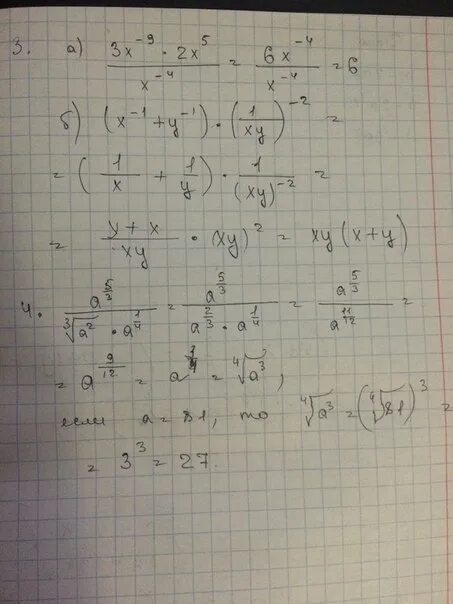 3. а) \frac{3x^{-9} \cdot 2x^{5}}{x^{-4}} = \frac{6x^{-4}}{x^{-4}} = 6
б) (x^{-1} + y^{-1}) \cdot (\frac{1}{xy})^{-2} =
= (\frac{1}{x} + \frac{1}{y}) \cdot \frac{1}{(xy)^{-2}} =
= \frac{y + x}{xy} \cdot (xy)^{2} = xy(x+y)
4. \frac{a^{\frac{5}{3}}}{\sqrt[3]{a^{2}} \cdot a^{\frac{1}{4}}} = \frac{a^{\frac{5}{3}}}{a^{\frac{2}{3}} \cdot a^{\frac{1}{4}}} = \frac{a^{\frac{5}{3}}}{a^{\frac{11}{12}}} =
= a^{\frac{9}{12}} = a^{\frac{3}{4}} = \sqrt[4]{a^{3}},
если a = 81, то \sqrt[4]{a^{3}} = (\sqrt[4]{81})^{3} =
= 3^{3} = 27.